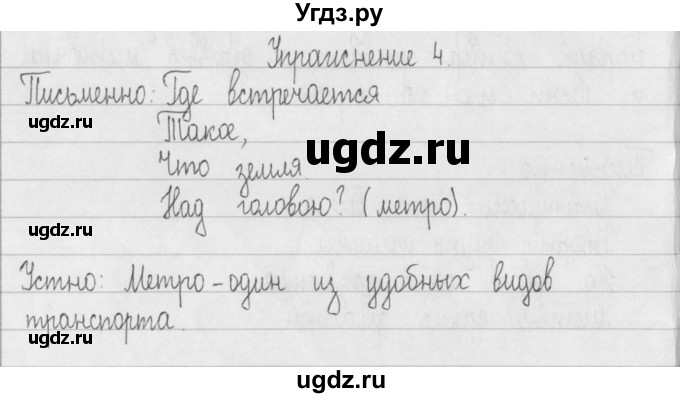 Угдз.ру
Упражнение 4
Письменно: Где встречается
ugdz.ru
Такое,
ugdz.ru
Что земля.
ugdz.ru
Над головою? (метро).
ugdz.ru
ugdz.ru
Устно: Метро – один из удобных видов
транспорта.
ugdz.ru
ugdz.ru
ugdz.ru